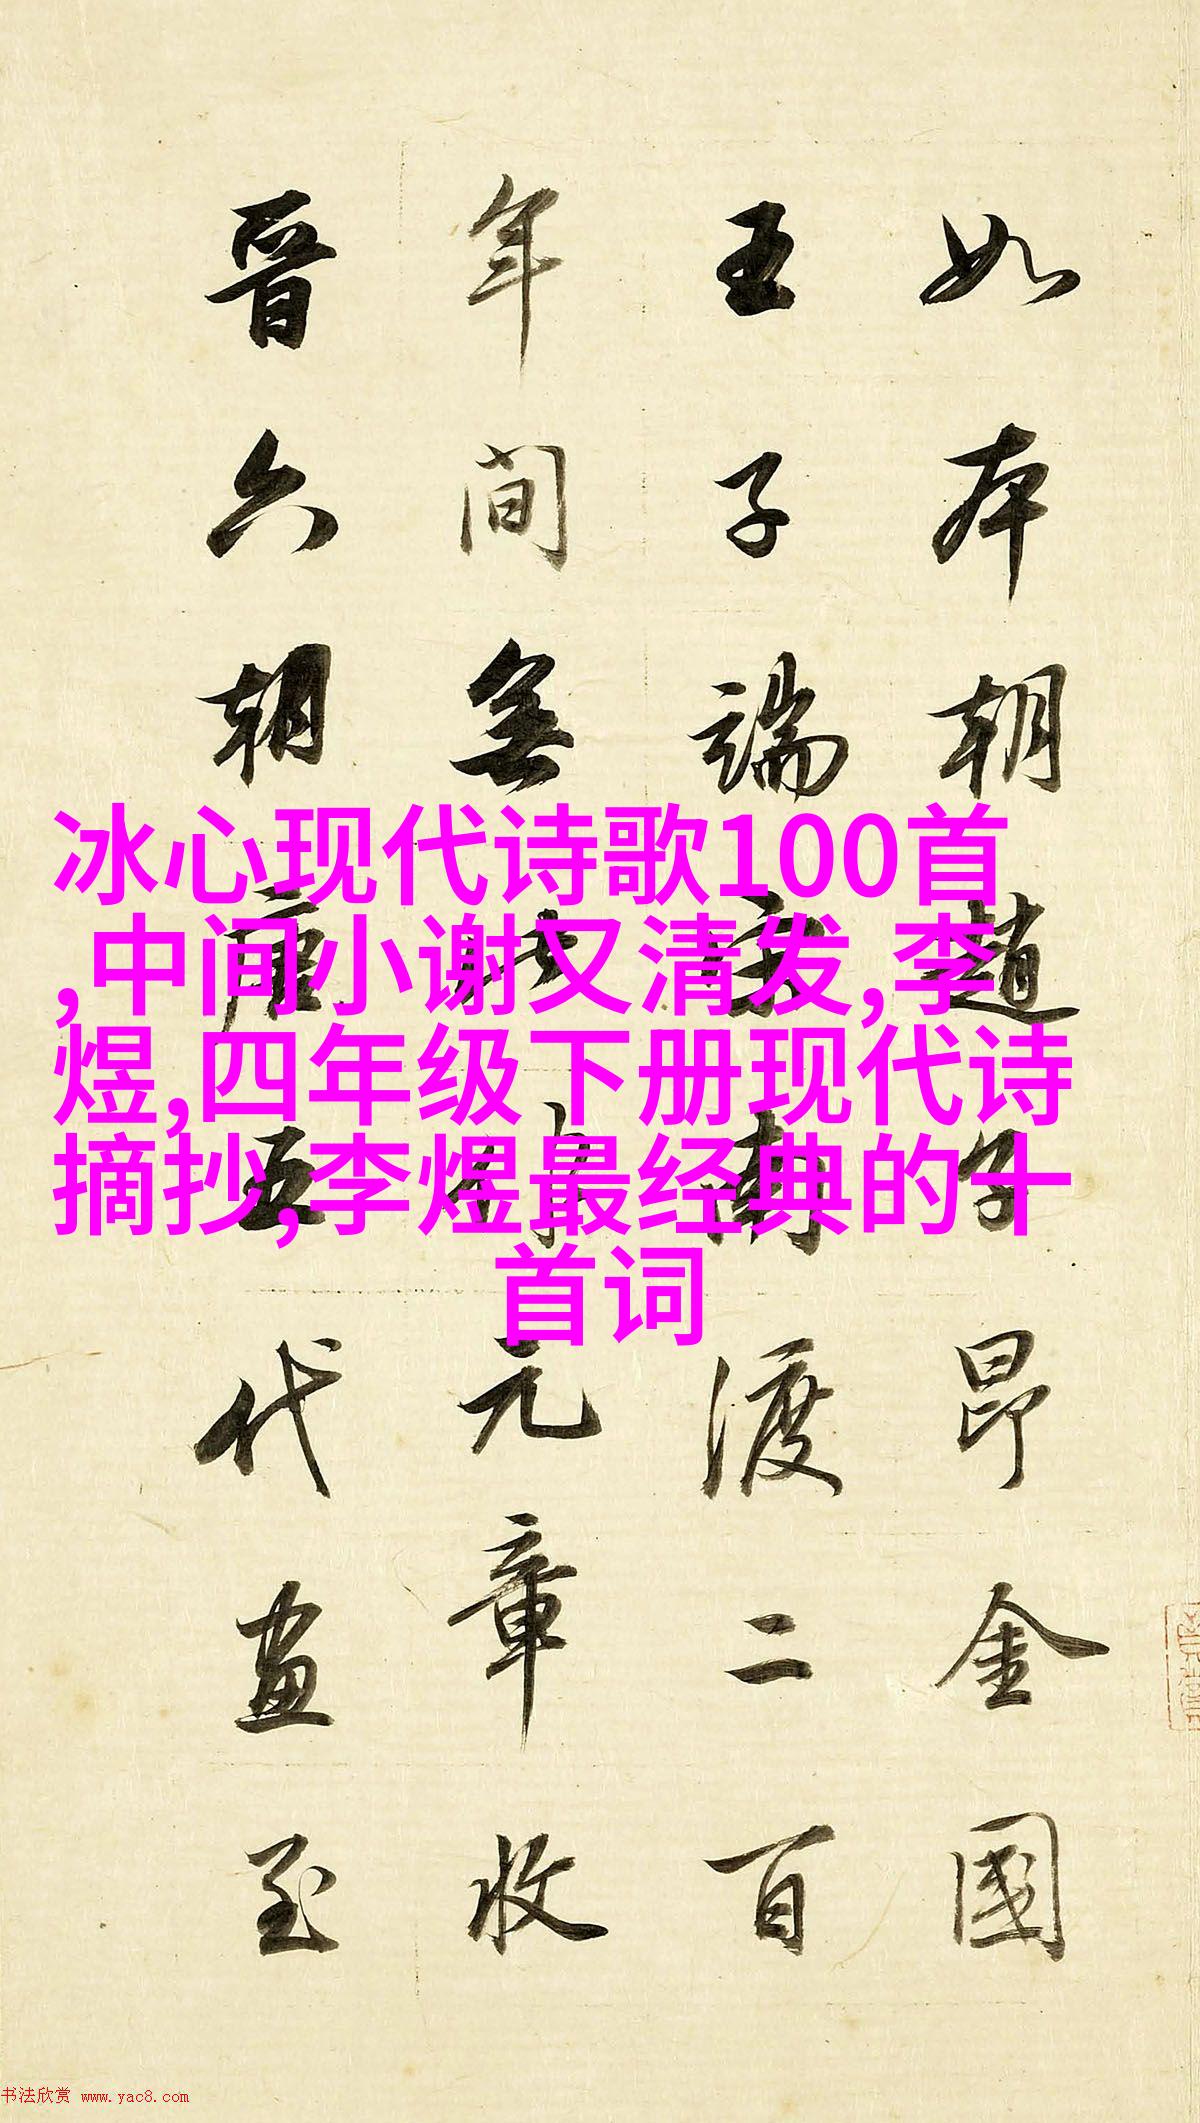 如本朝趙子昂金國
王子端宋南渡二百
年間無此作元章收
晉六朝唐五代畫至
冰心现代诗歌100首
,中间小谢又清发,李
煜,四年级下册现代诗
摘抄,李煜最经典的十
首词
书法欣赏 www.yac8.com